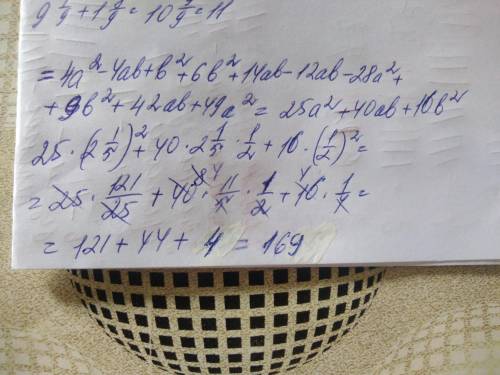 = 4a² - 4ab + b² + 6b² + 14ab - 12ab - 28a² +
+ 9b² + 42ab + 49a² = 25a² + 40ab + 16b²
25 · (2 1/5)² + 40 · 2 1/5 · 1/2 + 16 · (1/2)² =
= 25 · 121/25 + 40 · 11/5 · 1/2 + 16 · 1/4 =
= 121 + 44 + 4 = 169